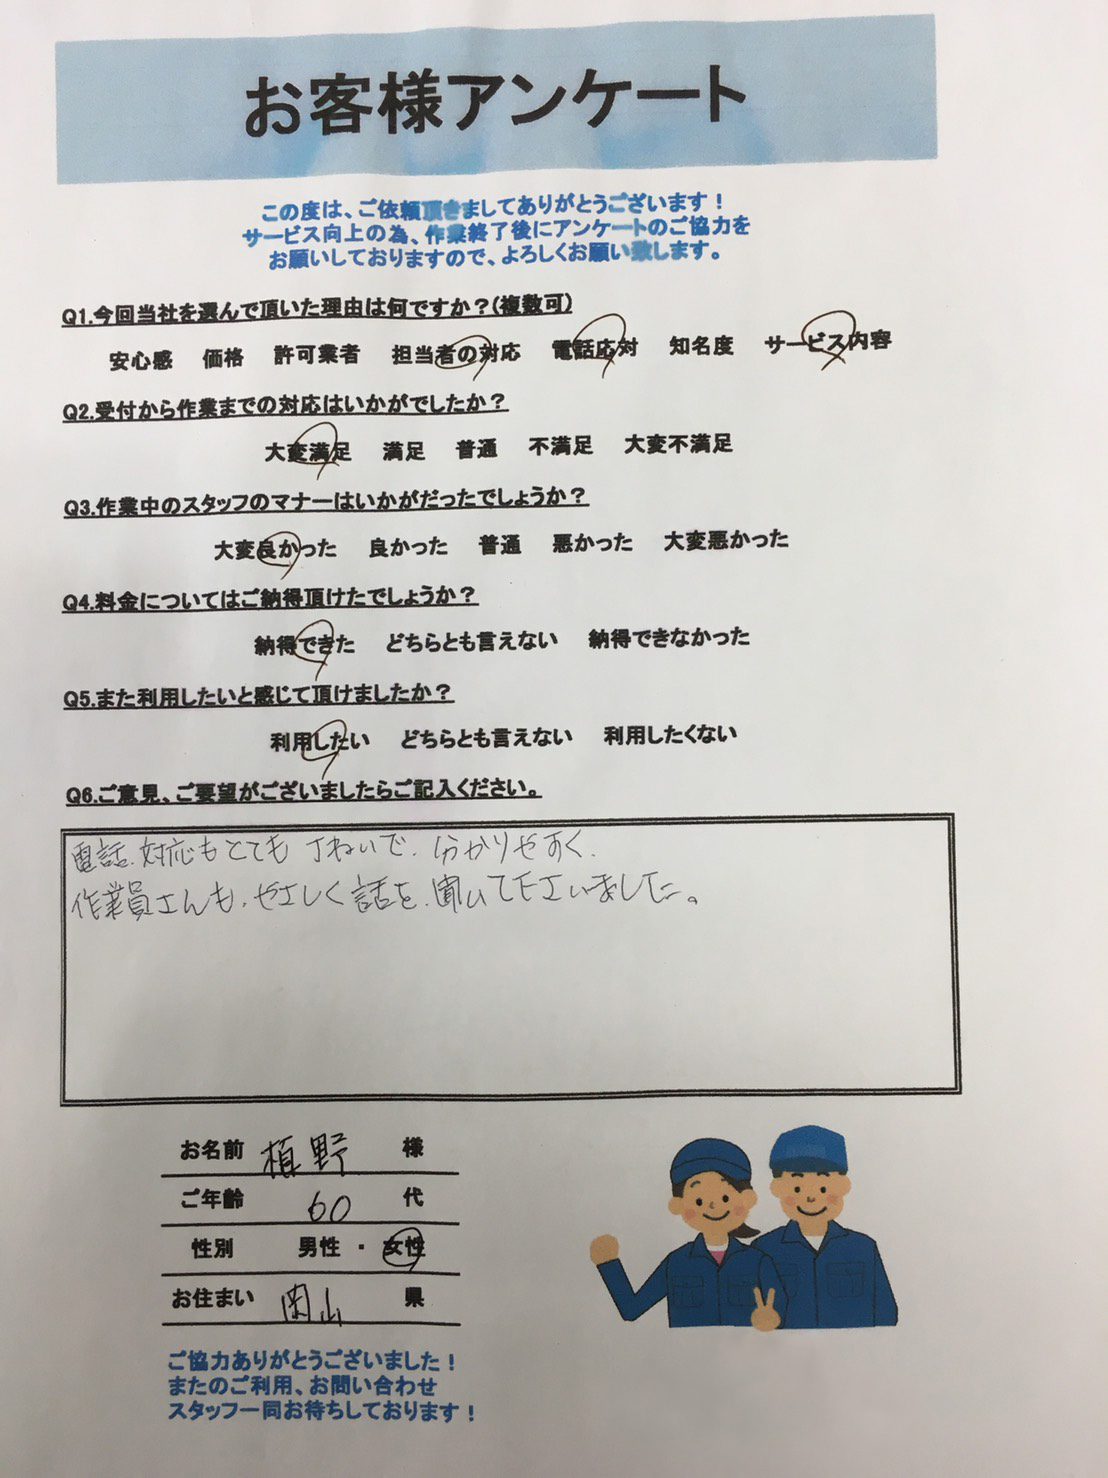 お客様アンケート
この度は、ご依頼頂きましてありがとうございます！
サービス向上の為、作業終了後にアンケートのご協力を
お願いしておりますので、よろしくお願い致します。
Q1.今回当社を選んで頂いた理由は何ですか？(複数可)
安心感 価格 許可業者 担当者の対応 電話応対 知名度 サービス内容
Q2.受付から作業までの対応はいかがでしたか？
大変満足 満足 普通 不満足 大変不満足
Q3.作業中のスタッフのマナーはいかがだったでしょうか？
大変良かった 良かった 普通 悪かった 大変悪かった
Q4.料金についてはご納得頂けたでしょうか？
納得できた どちらとも言えない 納得できなかった
Q5.また利用したいと感じて頂けましたか？
利用したい どちらとも言えない 利用したくない
Q6.ご意見、ご要望がございましたらご記入ください。
電話.対応もとても丁ねいで.分かりやすく.
作業員さんも.やさしく話を.聞いて下さいました。
お名前 槙野 様
ご年齢 60 代
性別 男性・女性
お住まい 岡山 県
ご協力ありがとうございました！
またのご利用、お問い合わせ
スタッフ一同お待ちしております！